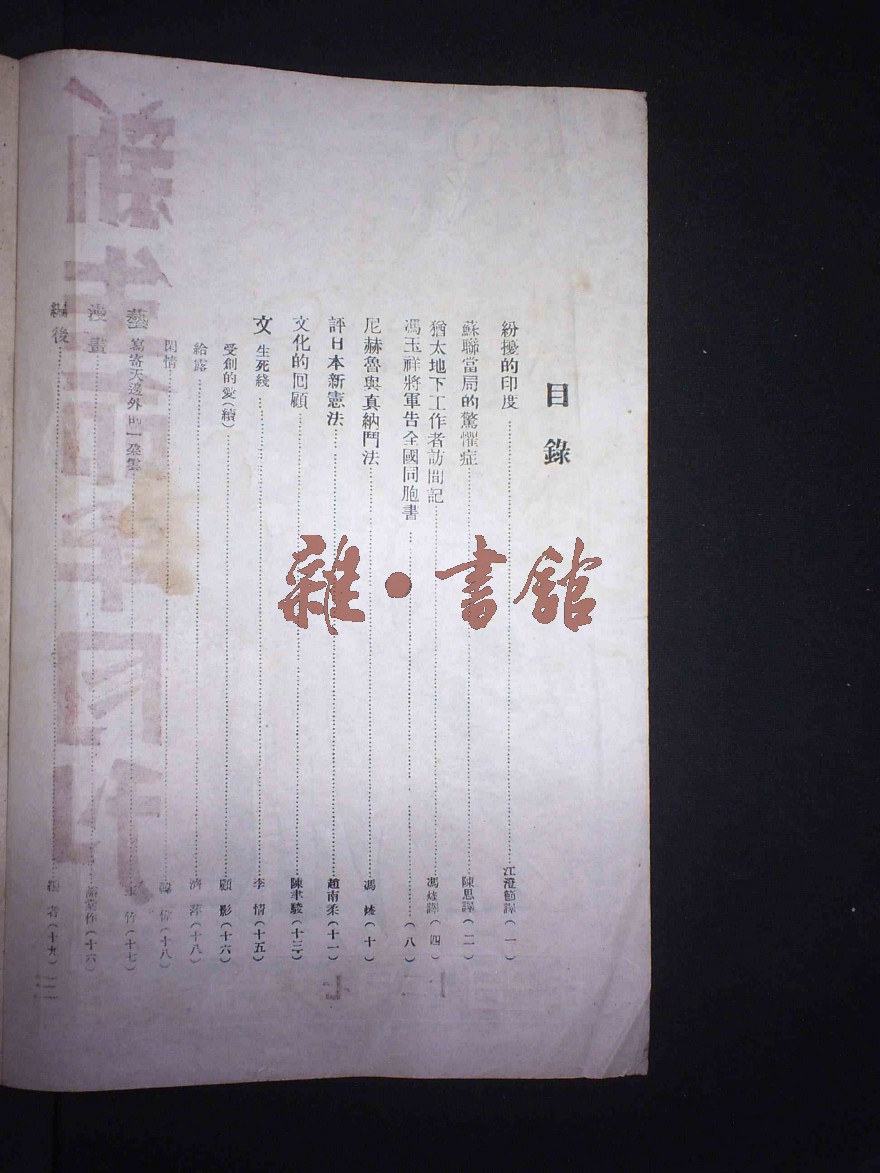 目錄
紛擾的印度 江澄節譯（一）
蘇聯當局的驚懼症 陳思譯（二）
猶太地下工作者訪問記 馮燧譯（四）
馮玉祥將軍告全國同胞書 （八）
尼赫魯與真納鬥法 馮燧（十）
評日本新憲法 趙南柔（十一）
文化的回顧 陳聿駿（十三）
文 生死綫 李情（十五）
受創的愛（續） 顧影（十六）
給露 濟萍（十八）
閑情 韓偉（十八）
藝 寫寄天邊外的一朶雲 玉竹（十七）
漫畫 作（十六）
編後 編者（十九）
雜·書館